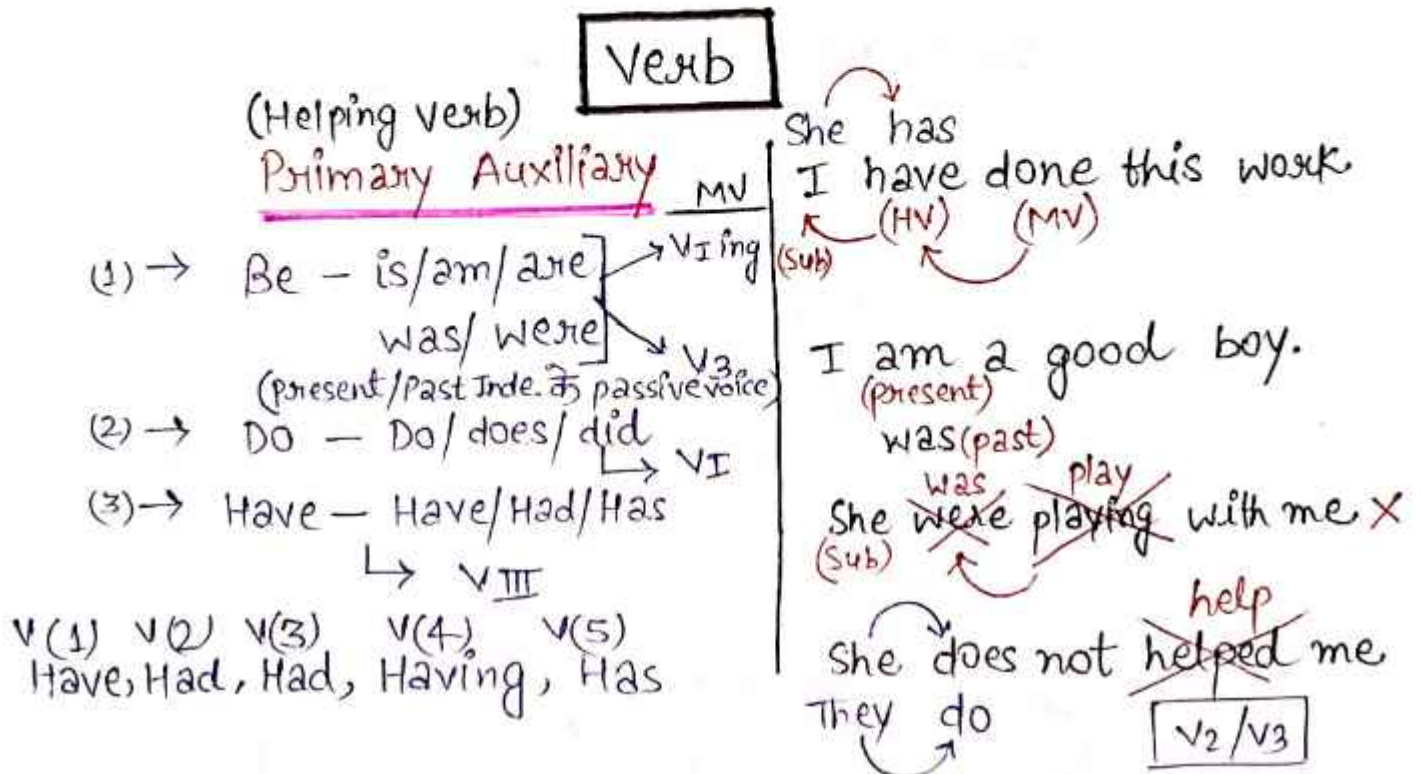 Verb
(Helping verb)
Primary Auxiliary
MV
(1) → Be – is/am/are
was/were
V I ing
V3
(present/Past Inde. के passive voice)
(2) → Do – Do/does/did
↳ VI
(3) → Have – Have/Had/Has
↳ V III
V(1) V(2) V(3) V(4) V(5)
Have, Had, Had, Having, Has
She has
I have done this work
(Sub) (HV) (MV)
I am a good boy.
(present)
was (past)
was play
She were playing with me ×
(Sub)
help
She does not helped me
They do
V2/V3